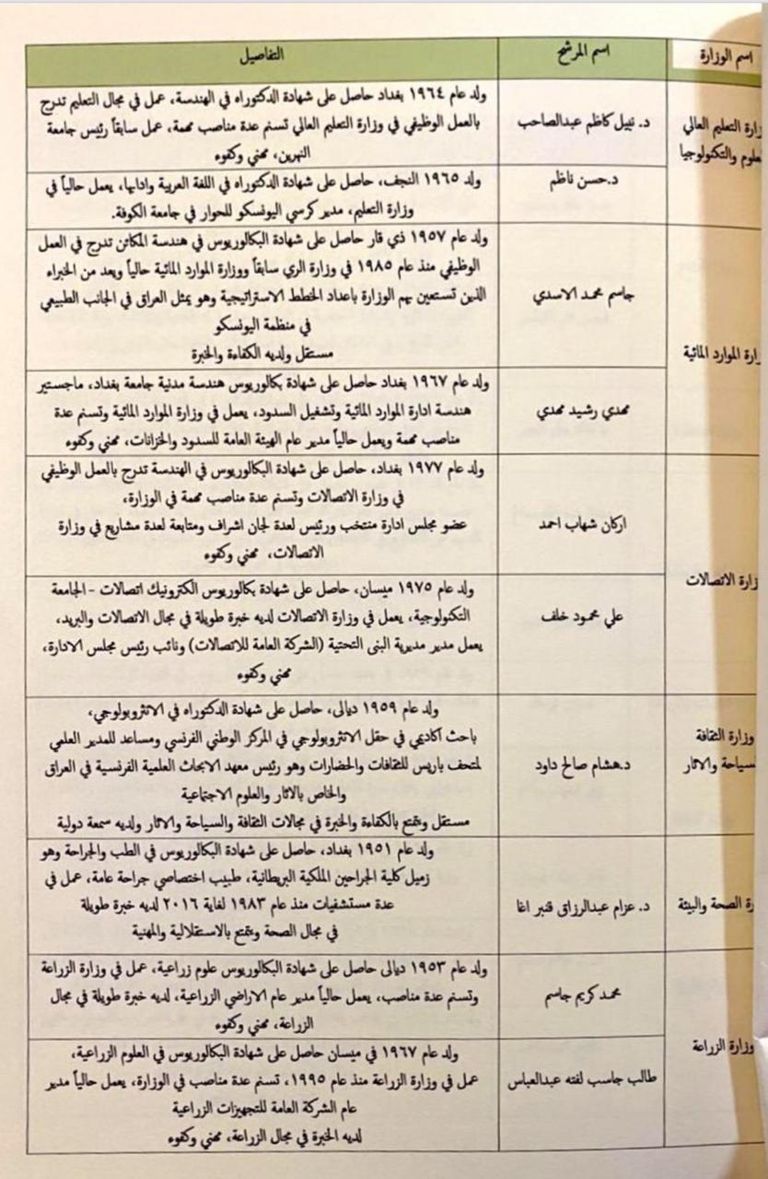 اسم الوزارة
اسم المرشح
التفاصيل
وزارة التعليم العالي
والعلوم والتكنولوجيا
د. نبيل كاظم عبدالصاحب
ولد عام ١٩٦٤ بغداد حاصل على شهادة الدكتوراه في الهندسة، عمل في مجال التعليم تدرج
بالعمل الوظيفي في وزارة التعليم العالي تسنم عدة مناصب مهمة، عمل سابقاً رئيس جامعة
النهرين، مهني وكفوء
د.حسن ناظم
ولد ١٩٦٥ النجف، حاصل على شهادة الدكتوراه في اللغة العربية وادابها، يعمل حالياً في
وزارة التعليم، مدير كرسي اليونسكو للحوار في جامعة الكوفة.
زارة الموارد المائية
جاسم محمد الاسدي
ولد عام ١٩٥٧ ذي قار حاصل على شهادة البكالوريوس في هندسة المكائن تدرج في العمل
الوظيفي منذ عام ١٩٨٥ في وزارة الري سابقاً ووزارة الموارد المائية حالياً ويعد من الخبراء
الذين تستعين بهم الوزارة باعداد الخطط الاستراتيجية وهو يمثل العراق في الجانب الطبيعي
في منظمة اليونسكو
مستقل ولديه الكفاءة والخبرة
مهدي رشيد مهدي
ولد عام ١٩٦٧ بغداد حاصل على شهادة بكالوريوس هندسة مدنية جامعة بغداد، ماجستير
هندسة ادارة الموارد المائية وتشغيل السدود، يعمل في وزارة الموارد المائية وتسنم عدة
مناصب مهمة ويعمل حالياً مدير عام الهيئة العامة للسدود والخزانات، مهني وكفوء
زارة الاتصالات
اركان شهاب احمد
ولد عام ١٩٧٧ بغداد، حاصل على شهادة البكالوريوس في الهندسة تدرج بالعمل الوظيفي
في وزارة الاتصالات وتسنم عدة مناصب مهمة في الوزارة،
عضو مجلس ادارة منتخب ورئيس لعدة لجان اشراف ومتابعة لعدة مشاريع في وزارة
الاتصالات، مهني وكفوء
علي محمود خلف
ولد عام ١٩٧٥ ميسان، حاصل على شهادة بكالوريوس الكترونيك اتصالات - الجامعة
التكنولوجية، يعمل في وزارة الاتصالات لديه خبرة طويلة في مجال الاتصالات والبريد،
يعمل مدير مديرية البنى التحتية (الشركة العامة للاتصالات) ونائب رئيس مجلس الادارة،
مهني وكفوء
وزارة الثقافة
سياحة والاثار
د.هشام صالح داود
ولد عام ١٩٥٩ ديالى، حاصل على شهادة الدكتوراه في الانثروبولوجي،
باحث أكاديمي في حقل الانثروبولوجي في المركز الوطني الفرنسي ومساعد للمدير العلمي
لمتحف باريس للثقافات والحضارات وهو رئيس معهد الابحاث العلمية الفرنسية في العراق
والخاص بالاثار والعلوم الاجتماعية
مستقل ويتمتع بالكفاءة والخبرة في مجالات الثقافة والسياحة والاثار ولديه سمعة دولية
رة الصحة والبيئة
د. عزام عبدالرزاق قنبر اغا
ولد عام ١٩٥١ بغداد، حاصل على شهادة البكالوريوس في الطب والجراحة وهو
زميل كلية الجراحين الملكية البريطانية، طبيب اختصاصي جراحة عامة، عمل في
عدة مستشفيات منذ عام ١٩٨٣ لغاية ٢٠١٦ لديه خبرة طويلة
في مجال الصحة ويتمتع بالاستقلالية والمهنية
وزارة الزراعة
محمد كريم جاسم
ولد عام ١٩٥٣ ديالى حاصل على شهادة البكالوريوس علوم زراعية، عمل في وزارة الزراعة
وتسنم عدة مناصب، يعمل حالياً مدير عام الاراضي الزراعية، لديه خبرة طويلة في مجال
الزراعة، مهني وكفوء
طالب جاسب لفته عبدالعباس
ولد عام ١٩٦٧ في ميسان حاصل على شهادة البكالوريوس في العلوم الزراعية،
عمل في وزارة الزراعة منذ عام ١٩٩٥، تسنم عدة مناصب في الوزارة، يعمل حالياً مدير
عام الشركة العامة للتجهيزات الزراعية
لديه الخبرة في مجال الزراعة، مهني وكفوء